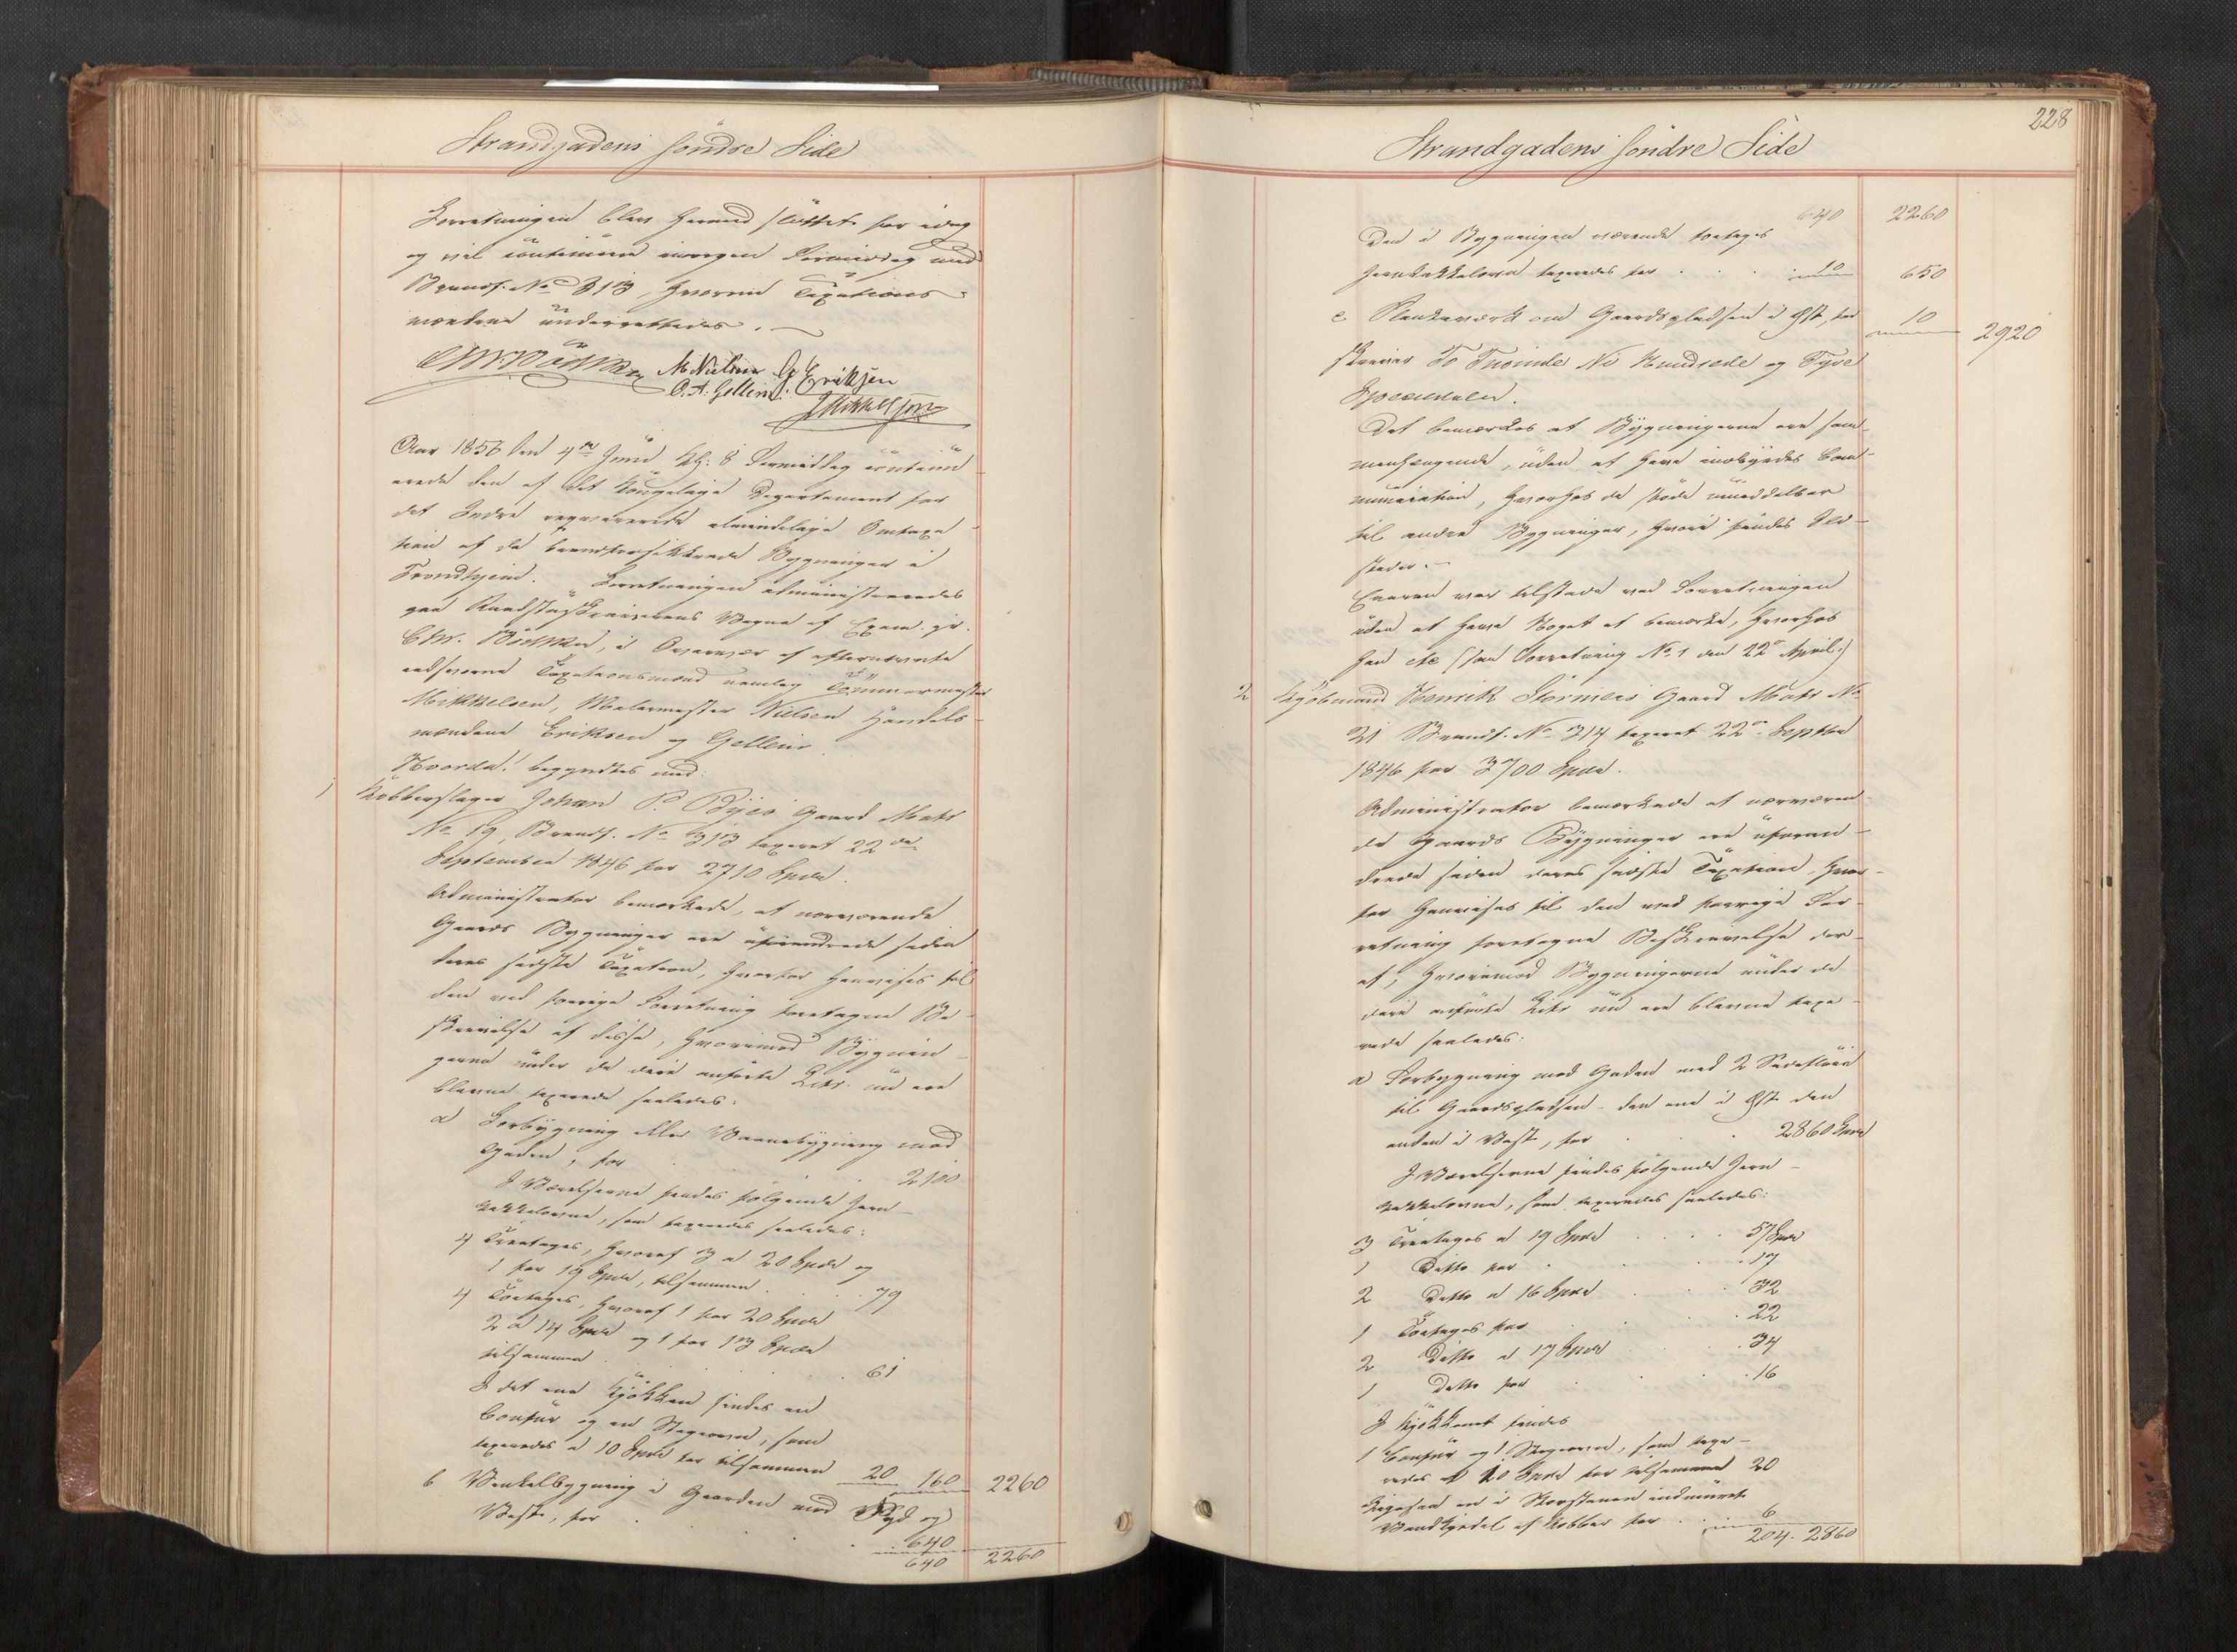 Strandgadens söndre Side
Forretningen blev herved sluttet for idag
og vil continuere imorgen Formiddag med
Brandf. No 313, hvorom Taxations-
mændene underrettedes.
M Nielsen G Eriksen
O. A. Gellein.
J Mikkelsen
Aar 1856 den 4de Juni Kl: 8 Formiddag continu-
erede den af det Kongelige Departement for
det Indre requirerede almindelige Omtaxa-
tion af de brandforsikkrede Bygninger i
Trondhjem. Forretningen administreredes
paa Raadstueskriverens Vegne af Exam. jur.
Chr. Bödtker, i Overvær af efternævnte
edsvorne Taxationsmænd nemlig Tömmermester
Mikkelsen, Malermester Nielsen Handels-
mændene Eriksen og Gellein
Hvorda! begyndtes med:
1 Kobberslager Johan P. Byes Gaard Matr
No 19, Brandf. No 313 taxeret 22de
September 1846 for 2710 Spd.
Administrator bemærkede, at nærværende
Gaards Bygninger ere uforandrede siden
deres sidste Taxation, hvorfor henvises til
den ved forrige Forretning foretagne Be-
skrivelse af disse, hvorimod Bygnin-
gerne under de deri anførte Litr. nu ere
blevne taxerede saaledes:
a Forbygning eller Vaanebygning mod
Gaden, for 2100
I Værelserne findes følgende Jern-
kakkelovne, som taxeredes saaledes:
4 Treetages, hvoraf 3 a 20 Spd og
1 for 19 Spd, tilsammen 79
4 Toetages, hvoraf 1 for 20 Spd
2 a 14 Spd og 1 for 13 Spd
tilsammen 61
I det ene Kjökken findes en
Comfur og en Stegeovn, som
taxeredes a 10 Spd for tilsammen 20 160 2260
b Vinkelbygning i Gaarden mod Syd og
Vest, for 640
640 2260
228
Strandgadens söndre Side
640 2260
Den i Bygningen værende toetages
Jernkakkelovn taxeredes for 10 650
c Plankeværk om Gaardspladsen i Öst, for 10 2920
skriver To Tusinde Ni Hundrede og Tyve
Speciedaler.
Det bemærkes at Bygningerne ere sam-
menhængende, uden at have indbyrdes Com-
munication, hvorhos de støde umiddelbar
til andre Bygninger, hvori findes Ild-
steder.
Eieren var tilstede ved Forretningen
uden at have Noget at bemærke, hvorhos
han etc (som Forretning No 1 den 22de April.)
2 Kjöbmand Henrik Störmers Gaard Matr No
21 Brandf. No 314 taxeret 22de Septbr
1846 for 3700 Spd.
Administrator bemærkede at nærværen-
de Gaards Bygninger ere uforan-
drede siden deres sidste Taxation, hvor-
for henvises til den ved forrige For-
retning foretagne Beskrivelse der-
af, hvorimod Bygningerne under de
deri anførte Litr nu ere blevne taxe-
rede saaledes:
a Forbygning mod Gaden med 2 Sidefløie
til Gaardspladsen - den ene i Öst den
anden i Vest, for 2860 Spd
I Værelserne findes følgende Jern-
kakkelovne, som taxeredes saaledes:
3 Treetages a 19 Spd 57 Spd
1 Ditto for 17
2 Ditto a 16 Spd 32
1 Toetages for 22
2 Ditto a 17 Spd 34
1 Ditto for 16
I Kjökkenet findes
1 Comfur og 1 Stegeovn, som taxe-
redes a 10 Spd for tilsammen 20
Ligesaa en i Skorstenen indmuret
Vandkjedel af Kobber for 6
204. 2860